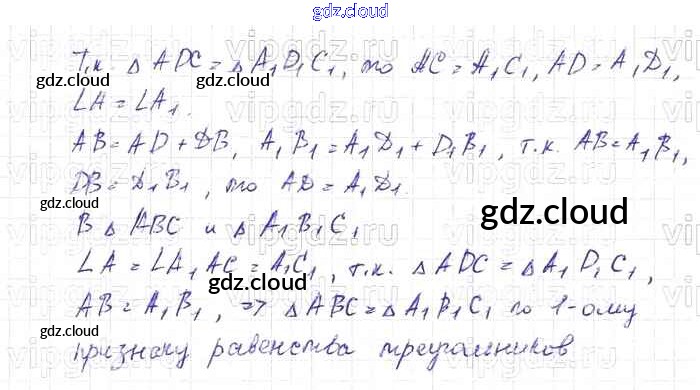 gdz.cloud
Т.к. △ ADC = △ A₁D₁C₁, то AC = A₁C₁, AD = A₁D₁,
gdz.cloud gdz.cloud
∠A = ∠A₁.
AB = AD + DB, A₁B₁ = A₁D₁ + D₁B₁, т.к. AB = A₁B₁,
DB = D₁B₁, то AD = A₁D₁.
gdz.cloud
В △ ABC и △ A₁B₁C₁
gdz.cloud
∠A = ∠A₁ AC = A₁C₁, т.к. △ ADC = △ A₁D₁C₁,
gdz.cloud
AB = A₁B₁, => △ ABC = △ A₁B₁C₁ по 1-ому
gdz.cloud gdz.cloud
признаку равенства треугольников